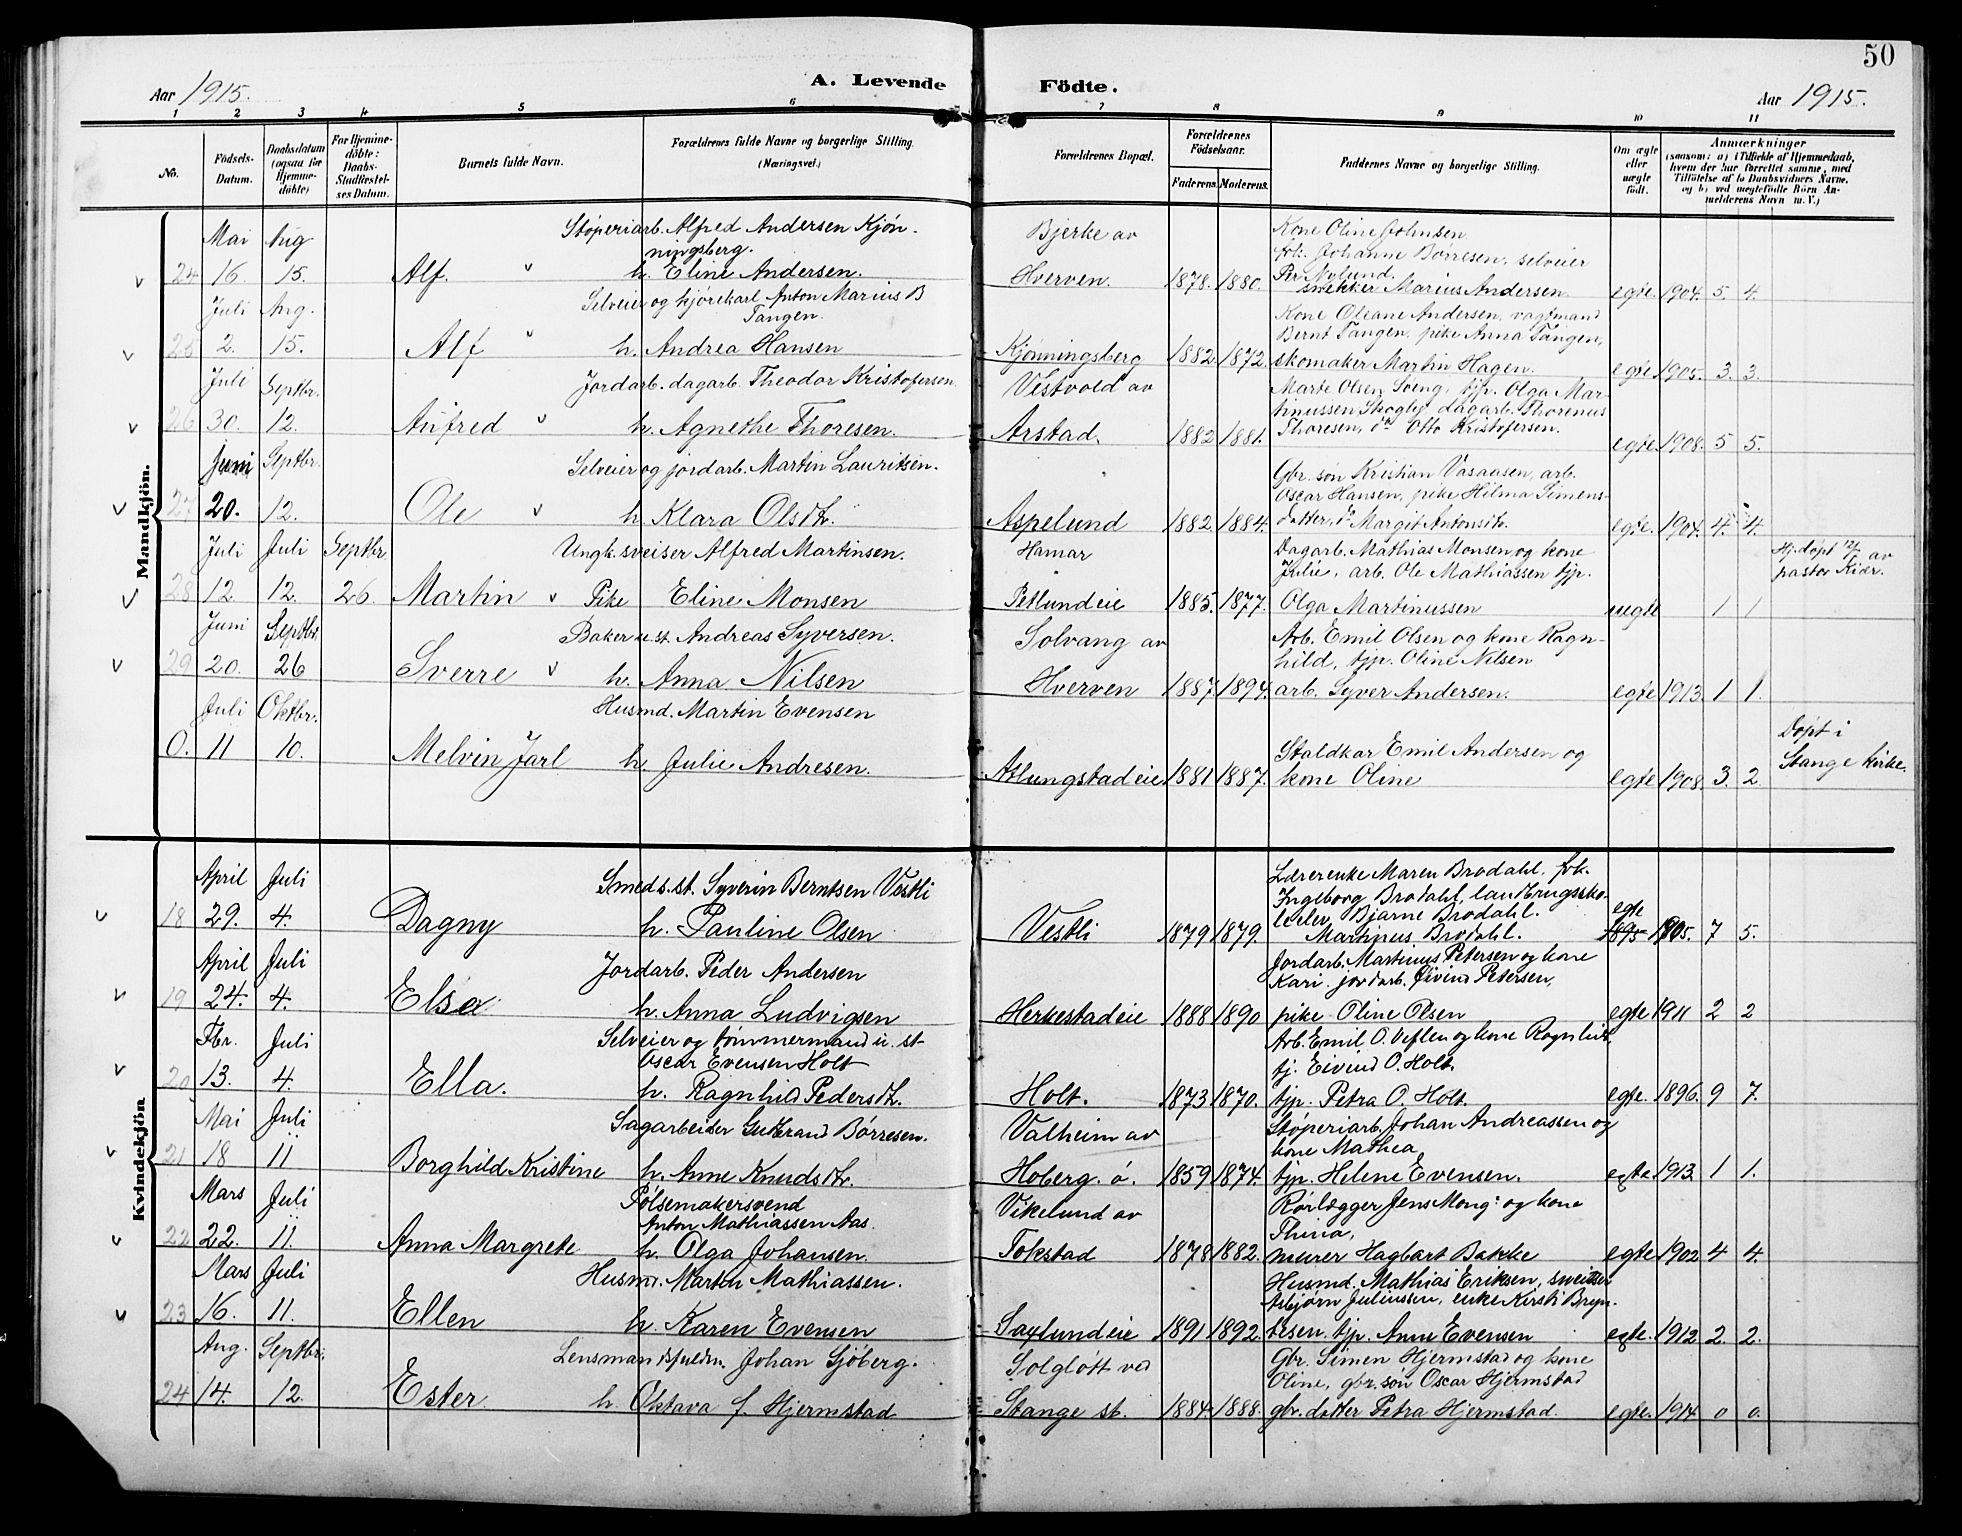 50
Aar 1915.
A. Levende
Födte.
Aar 1915.
1 2 3 4 5 6 7 8 9 10 11
No.
Födsels-
Datum.
Daabsdatum
(ogsaa for
Hjemme-
döbte)
For Hjemme-
döbte:
Daabs-
Stadfæstel-
ses Datum.
Barnets fulde Navn.
Forældrenes fulde Navne og borgerlige Stilling.
(Næringsvei.)
Forældrenes Bopæl.
Forældrenes
Födselsaar.
Faderens. Moderens.
Faddernes Navne og borgerlige Stilling.
Om ægte
eller
uægte
født.
Anmærkninger
(saasom: a) i Tilfælde af Hjemmedaab,
hvem der har forrettet samme, med
Tilföielse af to Daabsvidners Navne.
og b) ved uægtefødte Börn An-
melderens Navn m. V.)
Mandkjön.
Mai Aug Støperiarb. Alfred Andersen Kjøn-
ningsberg. Bjerke av Kone Oline Johnsen.
frk. Johanne Børresen, selveier
Per Nylund.
24 16 15. Alf. h. Eline Andersen. Hverven. 1878. 1880. snekker Marius Andersen. egte. 1904. 5. 4.
Juli Aug. Selveier og kjørekarl Anton Marius B
Tangen. Kone Oleane Andersen, vagtmand
Bernt Tangen, pike Anna Tangen,
25 2. 15. Alf h. Andrea Hansen Kjønningsberg 1882. 1872. skomaker Martin Hagen. egte 1905. 3. 3.
Juli Septbr. Jordarb. dagarb. Theodor Kristofersen. Vestvold av Marte Olsen Soeng, tjp. Olga Mar-
tinussen Skogly, dagarb. Thorenus
26 30. 12. Anfred h. Agnethe Thoresen. Arstad. 1882 1881. Thoresen, do Otto Kristofersen. egte 1908. 5 5.
Juni Septbr. Selveier og jordarb. Martin Lauritsen. Gbr. søn Kristian Vasaasen, arb.
Oscar Hansen, pike Hilma Simens-
27 20. 12. Ole h. Klara Olsdt. Aspelund 1882. 1884. datter, do Margit Antonsdt. egte. 1904. 4. 4.
Juli Juli Septbr Ungk. sveiser Alfred Martinsen. Hamar Dagarb. Mathias Monsen og kone
Julie, arb. Ole Mathiassen tjp. Hj. døpt 12/7 av
pastor Kiær.
28 12. 12. 26. Martin Pike Eline Monsen Petlundeie 1885. 1877. Olga Martinussen uegte 1 1
Juni Septbr. Baker u. st. Andreas Syversen. Solvang av Arb. Emil Olsen og kone Ragn-
hild, tjp. Oline Nilsen
29 20. 26 Sverre h. Anna Nilsen Hverven 1887. 1894. arb. Syver Andersen. egte 1913. 1 1.
Juli Oktbr. Husmd. Martin Evensen Staldkar Emil Andersen og Døpt i
Stange kirke.
0. 11 10. Melvin Jarl h. Julie Andresen. Atlungstadeie 1881 1887. kone Oline egte 1908. 3. 2.
Kvindekjön
April Juli Smeds. st. Syverin Berntsen Vestli Lærerenke Maren Brodahl, frk.
Ingeborg Brodahl, landbrugssko-
leelev Bjarne Brodahl.
18 29. 4. Dagny h. Pauline Olsen Vestli 1879 1879. Martinus Brodahl. egte 1895 1905. 7 5.
April Juli Jordarb. Peder Andersen Jordarb. Martinus Petersen og kone
Kari, jordarb. Øivind Petersen,
19 24. 4. Elsa h. Anna Ludvigsen Herkestadeie 1888 1890 pike Oline Olsen egte 1911 2 2
Fbr. Juli Selveier og tømmermand u. st
Oscar Evensen Holt Arb. Emil O. Veflen og kone Ragnhild
tj. Eivind O. Holt.
20 13. 4. Ella. h. Ragnhild Pedersdt. Holt. 1873 1870. tjp. Petra O. Holt. egte. 1896. 9 7.
Mai Juli Sagarbeider Gutbrand Børresen. Valheim av Støperiarb. Johan Andreassen og
kone Mathea
21 18 11 Borghild Kristine h. Anne Knudsdt. Hoberg. ö. 1859 1874. tjp. Helene Evensen. egte 1913. 1 1.
Mars Juli Pølsemakersvend
Anton Mathiassen Aas. Vikelund av Rørlægger Jens Mong: og kone
Thina,
22 22. 11. Anna Margrete h. Olga Johansen. Tokstad 1878 1882. murer Hagbart Bakke egte 1902 4 4.
Mars Juli Husmd. Martin Mathiassen. Husmd. Mathias Eriksen, sveitser
Asbjørn Juliussen, enke Kirsti Bryn-
23 16. 11. Ellen h. Karen Evensen Saxlundeie 1891 1892. tesen. tjp. Anne Evensen egte. 1912. 2. 2.
Aug. Septbr. Lensmandsfuldm. Johan Sjøberg. Solgløtt ved Gbr. Simen Hjermstad og kone
Oline, gbr. søn Oscar Hjermstad
24 14. 12. Ester h. Oktava f. Hjermstad Stange st. 1884 1888. gbr. datter Petra Hjermstad. egte. 1914. 0 0.